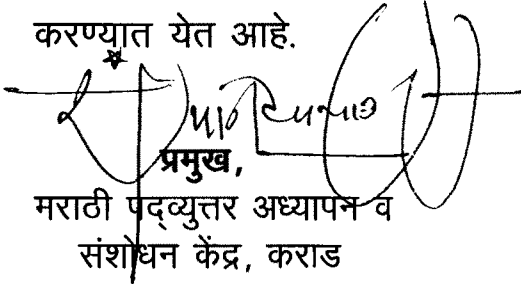 करण्यात येत आहे.
प्रमुख,
मराठी पद्व्युत्तर अध्यापन व
संशोधन केंद्र, कराड